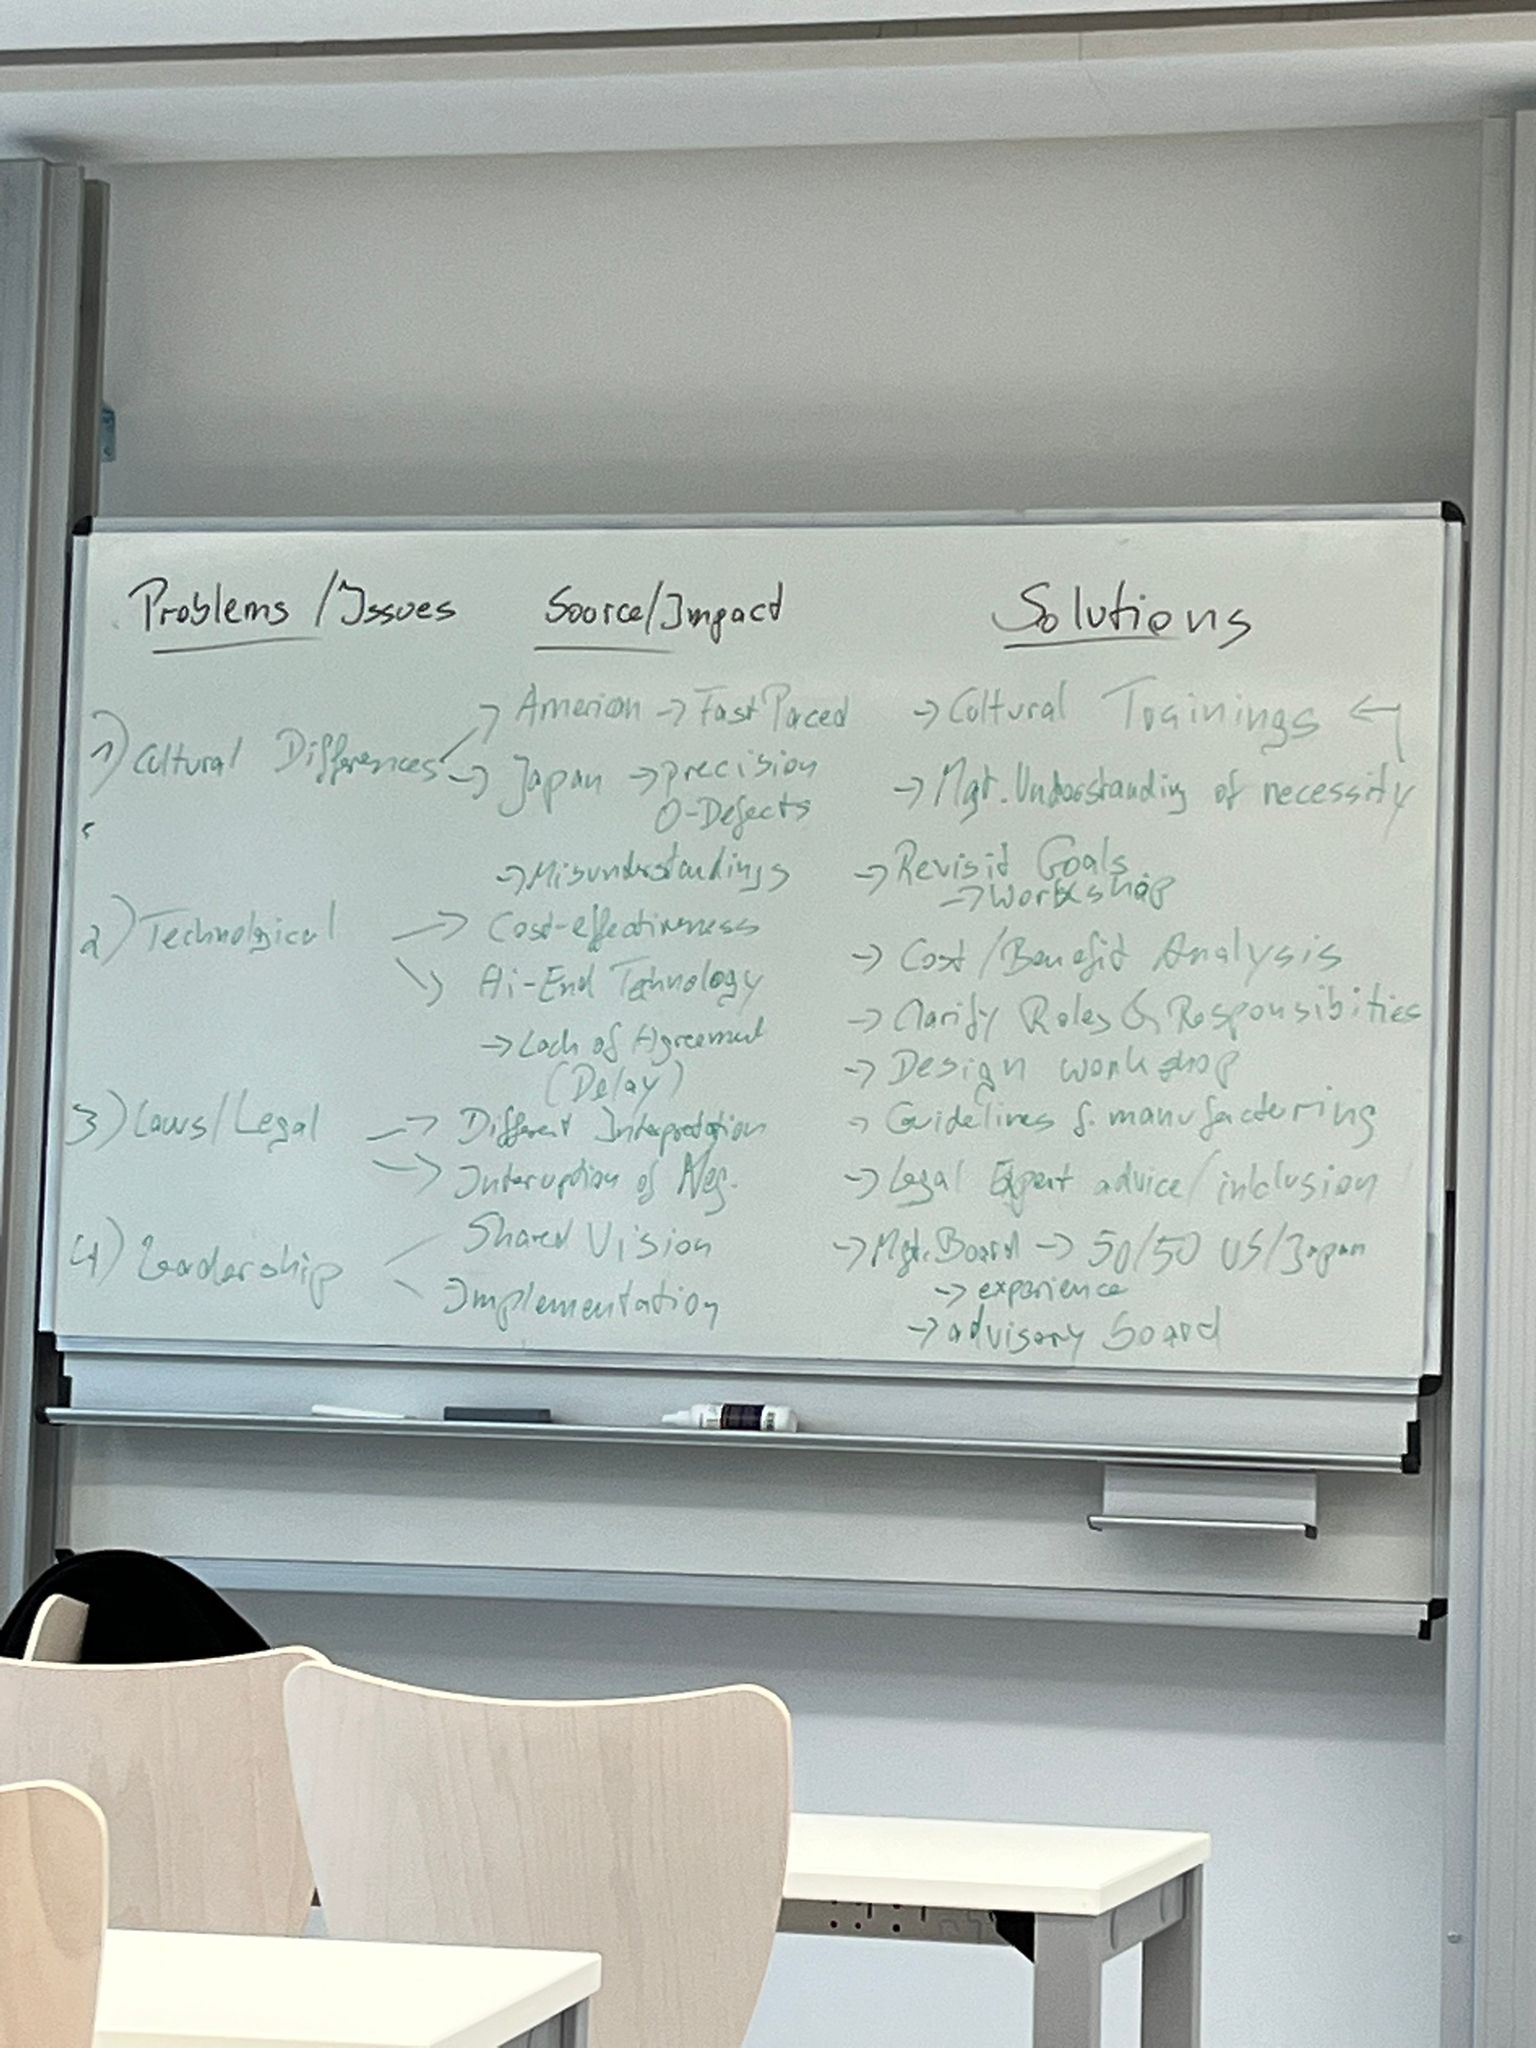 Problems / Issues
Source/Impact
Solutions
1) Cultural Differences
→ American → Fast Paced
→ Japan → precision
0-Defects
→ Misunderstandings
→ Cultural Trainings ←
→ Mgt. Understanding of necessity
→ Revisit Goals
→ workshop
2) Technological
→ Cost-effectiveness
→ Hi-End Technology
→ Lack of Agreement
(Delay)
→ Cost/Benefit Analysis
→ Clarify Roles & Responsibities
→ Design workshop
3) Laws/Legal
→ Different Interpretation
→ Interuption of Neg.
→ Guidelines f. manufacturing
→ Legal Expert advice/inclusion
4) Leadership
Shared Vision
Implementation
→ Mgt. Board → 50/50 US/Japan
→ experience
→ advisory board